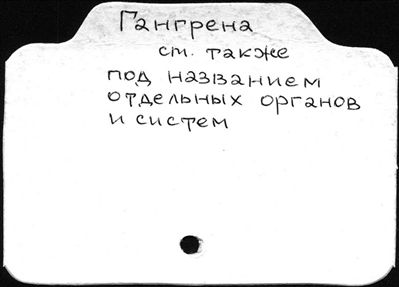 Гангрена
см. также
под названием
отдельных органов
и систем